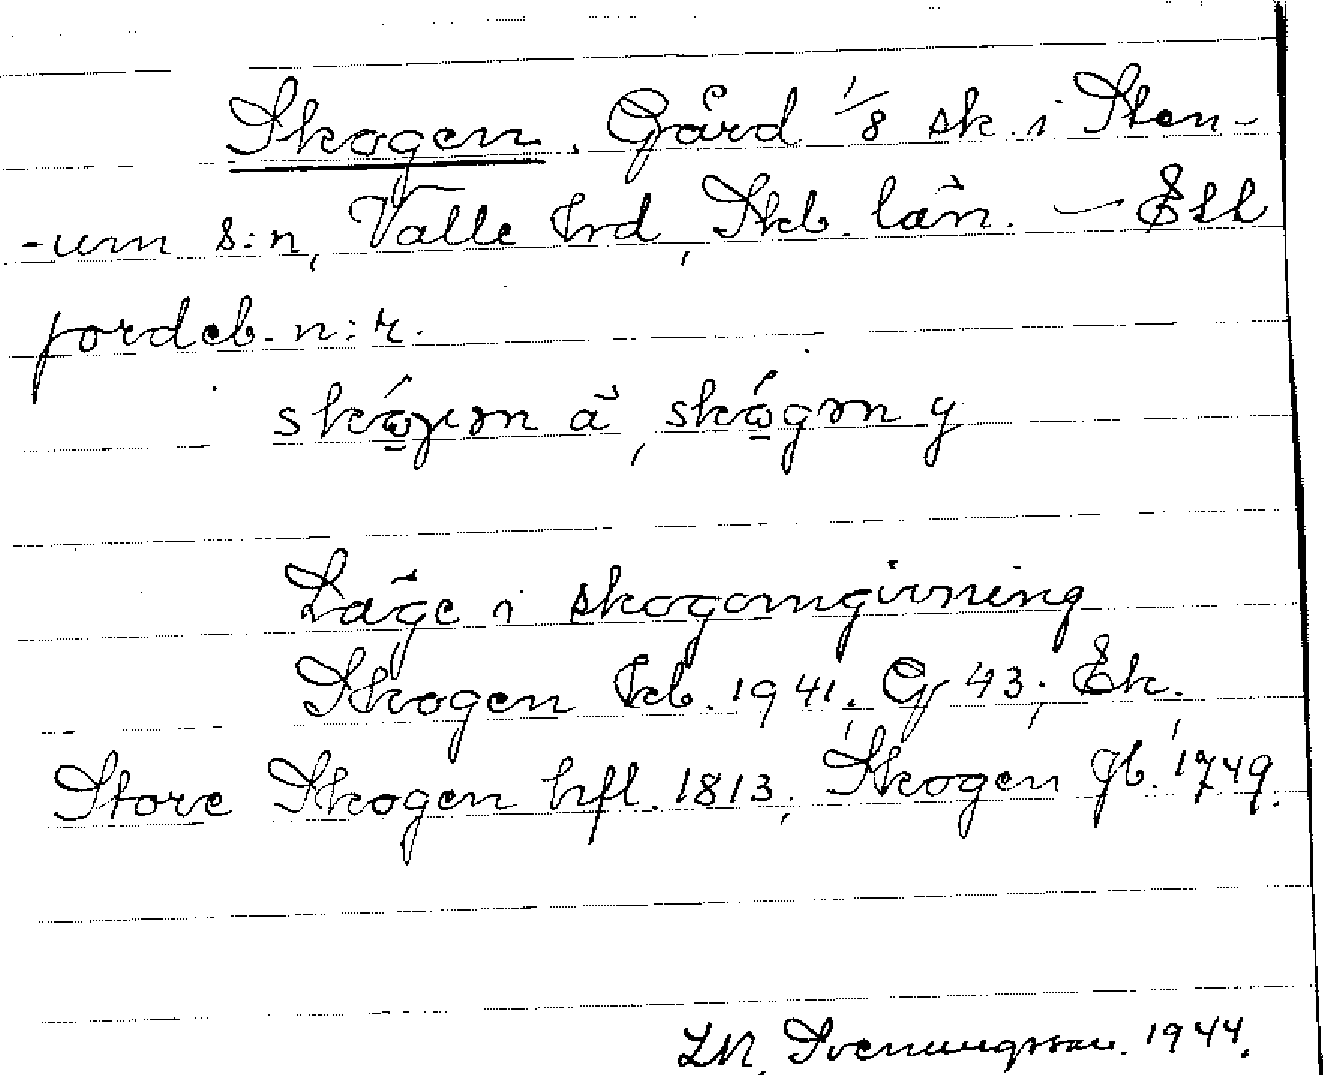 Skogen. Gård 1/8 sk. i Sten-
-um s:n, Valle hrd, Skb. län. – Ett
jordeb. n:r.
ä, y
Läge i skogomgivning
Skogen kb. 1941; G 43; Ek.
Store Skogen hfl. 1813; Skogen jb. 1749.
Svenungsson. 1944.